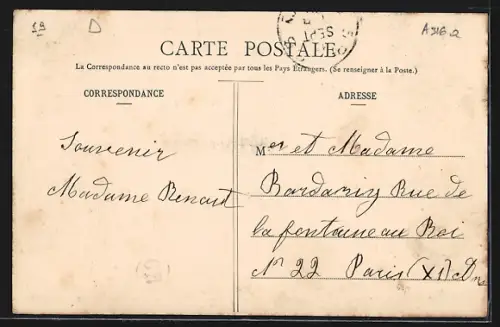 19 D A 216 a
SEPT
CARTE POSTALE
La Correspondance au recto n'est pas acceptée par tous les Pays Etrangers. (Se renseigner à la Poste.)
CORRESPONDANCE
ADRESSE
Souvenir
Madame Renard
Mer et Madame
Rue de
la fontaine au Roi
No 22 Paris (XI)